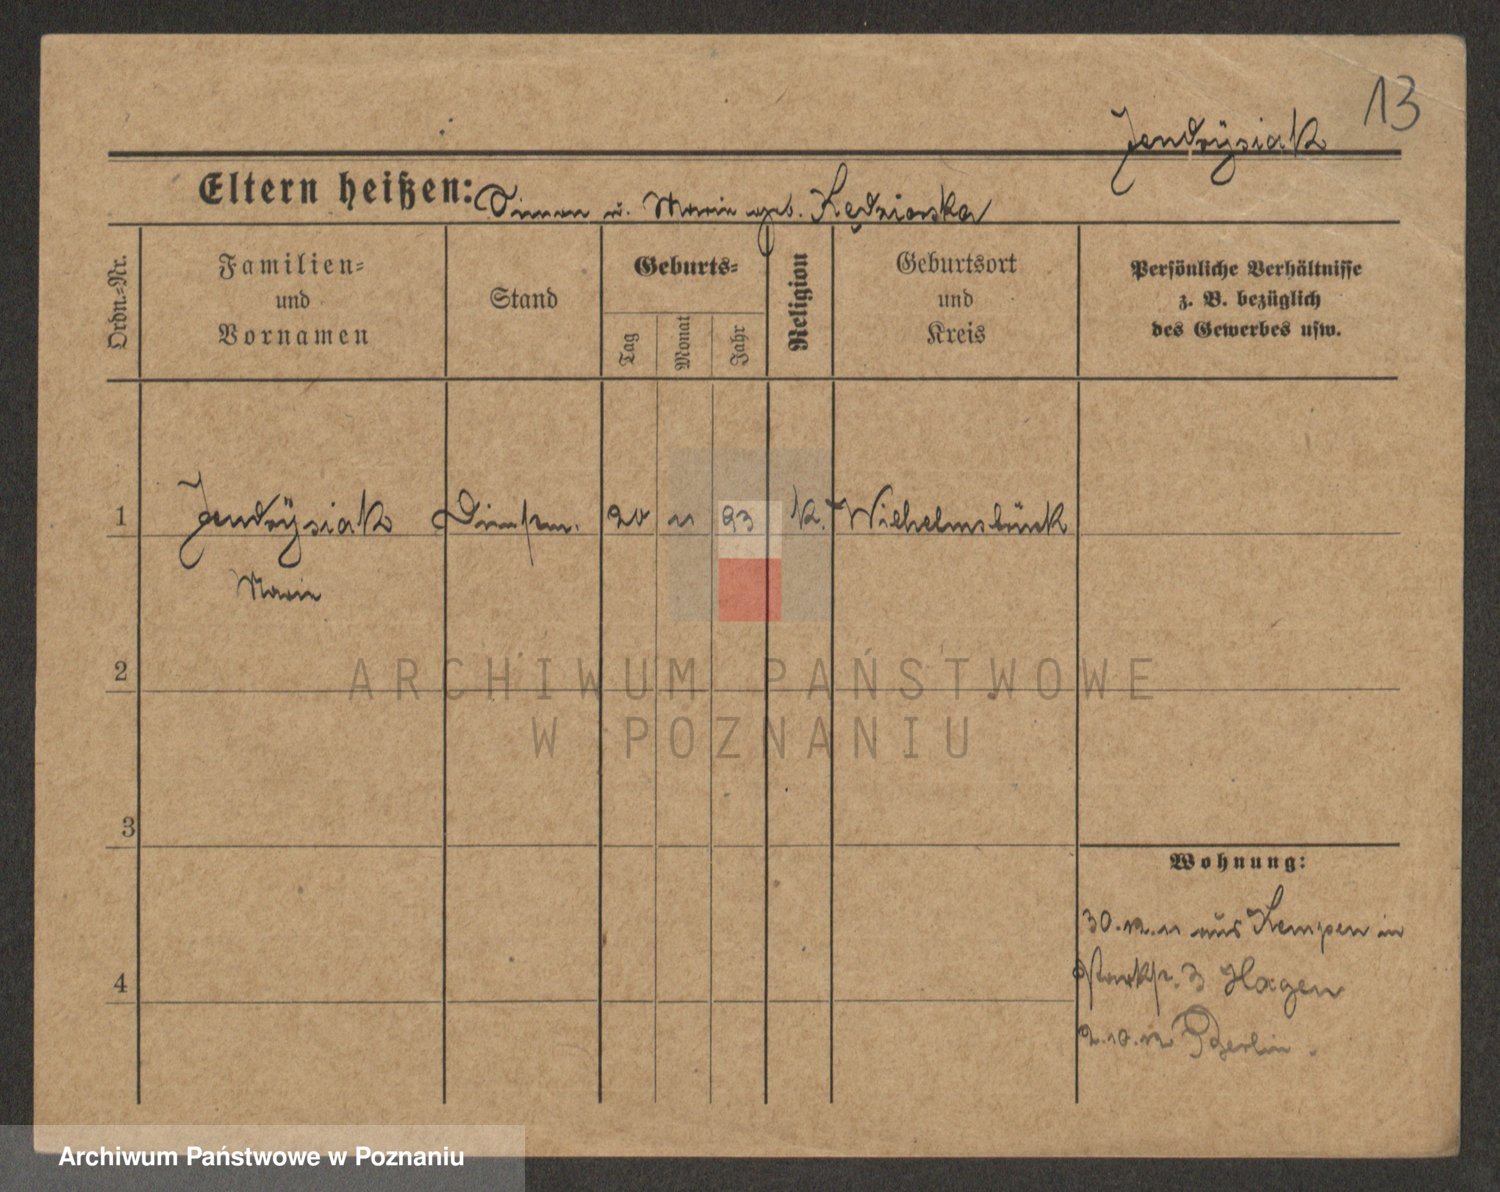 13
Jendrÿsiak
Eltern heißen: Simon u. Marie geb. Kędziorska
Ordn.=Nr.
Familien=
und
Vornamen
Stand
Geburts=
Tag
Monat
Jahr
Religion
Geburtsort
und
Kreis
Persönliche Verhältnisse
z. B. bezüglich
des Gewerbes usw.
1 Jendrÿsiak 20 11 93 k. Wilhelmsbrück
Marie
2
3
4
Wohnung:
30.12.11 aus Kempen in
3 Hagen
2.10.12 Berlin.
ARCHIWUM PAŃSTWOWE
W POZNANIU
Archiwum Państwowe w Poznaniu